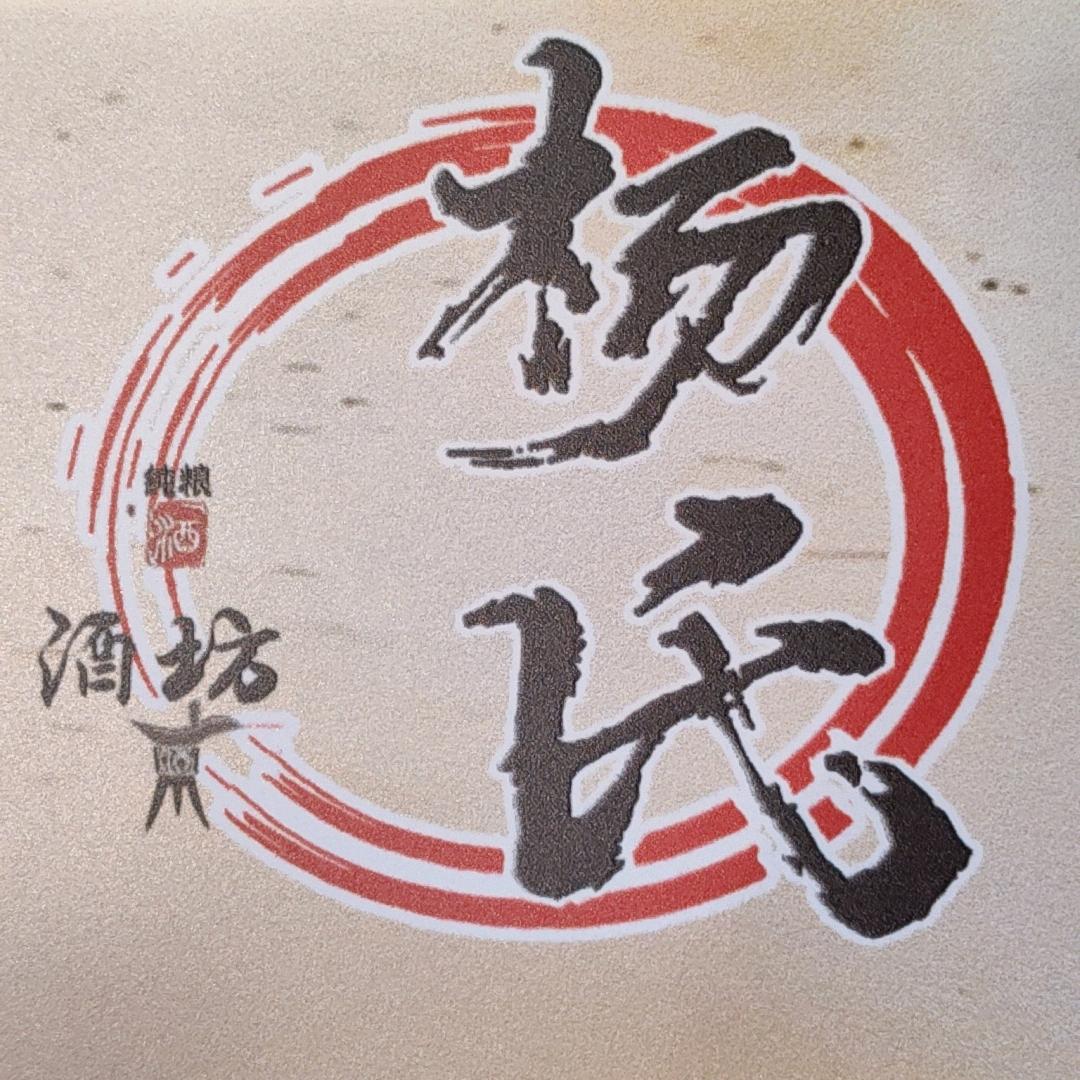 杨
氏
纯粮
酒
酒坊